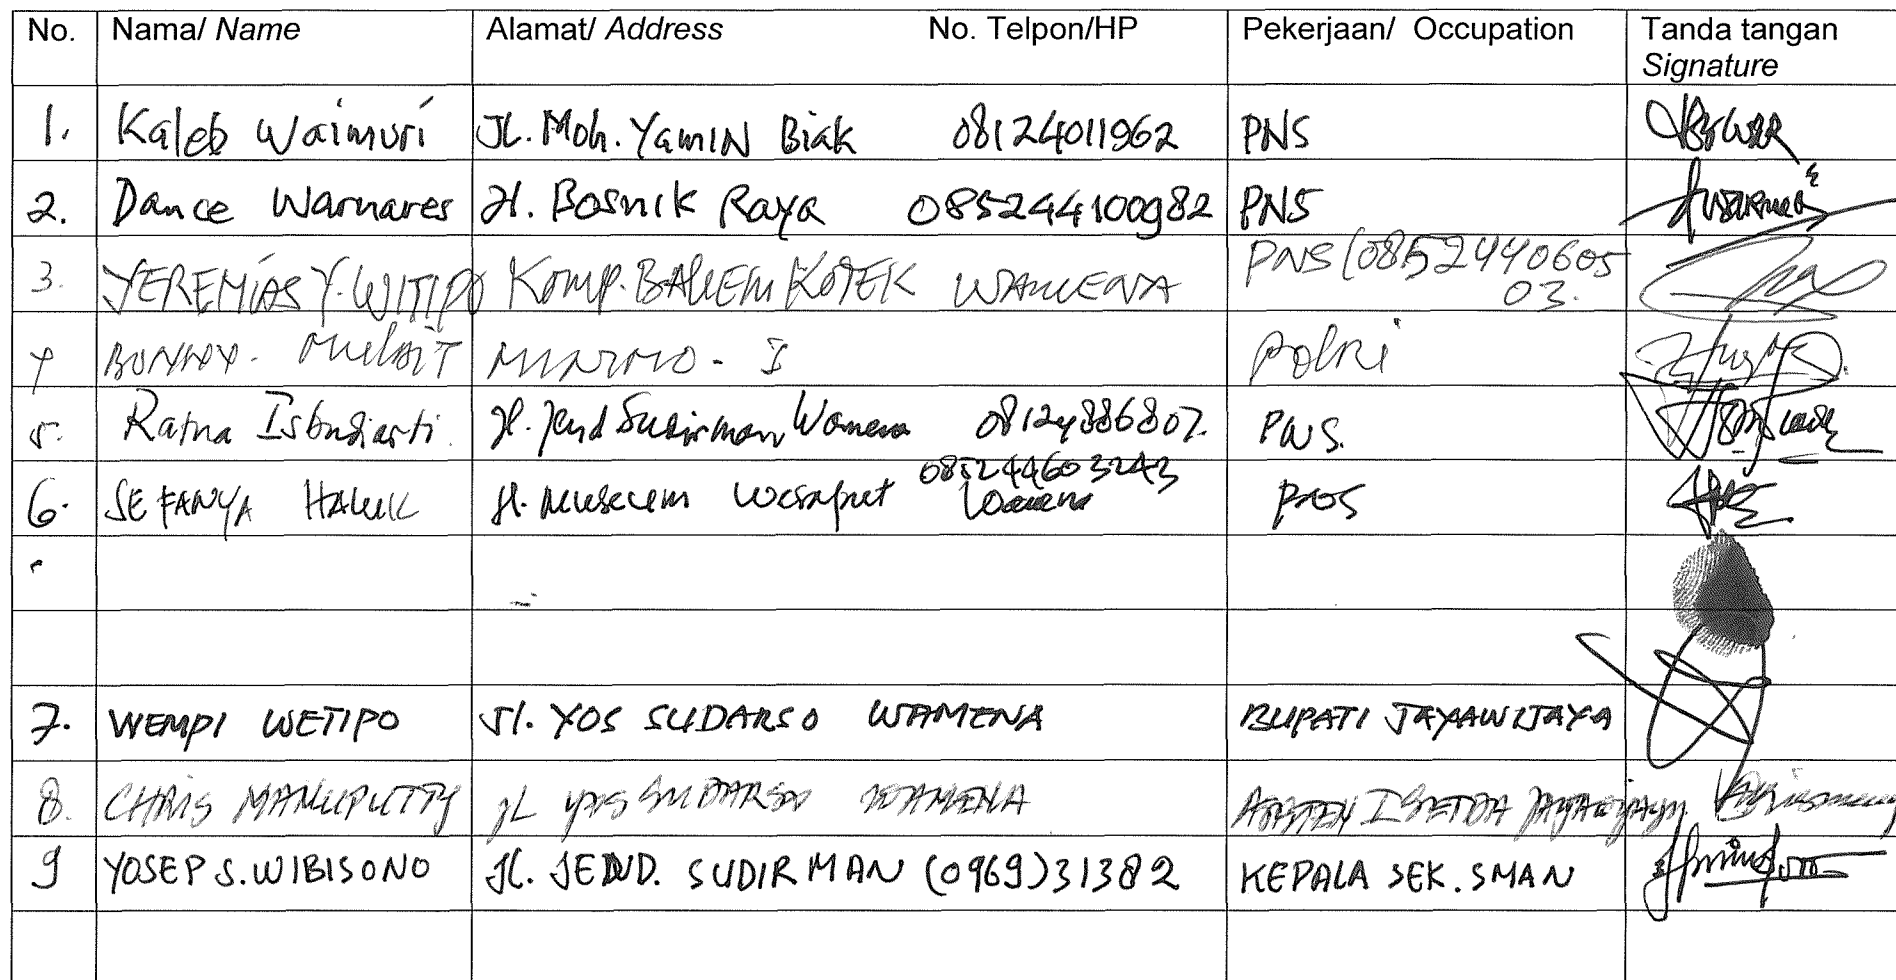 No. Nama/ Name Alamat/ Address No. Telpon/HP Pekerjaan/ Occupation Tanda tangan
Signature
1. Kaleb Waimuri JL. Moh. Yamin Biak 08124011962 PNS
2. Dance Warnares Jl. Bosnik Raya 085244100982 PNS
3. YEREMIAS Y. WITIPO Komp. BALIEM KOTEK WAMENA PNS (0852440605
03.
4 Polri
5. Ratna Isbudiarti. Jl. Jend Sudirman Wamena 08124886807. PNS.
085244603243
6. SEFANYA HALUK Jl. Museum Wesaput Wamena PNS
7. WEMPI WETIPO Jl. YOS SUDARSO WAMENA BUPATI JAYAWIJAYA
8. CHRIS MANUPUTTY JL YOS SUDARSO WAMENA ASISTEN I SETDA
9 YOSEP S. WIBISONO Jl. JEND. SUDIRMAN (0969)31382 KEPALA SEK. SMAN